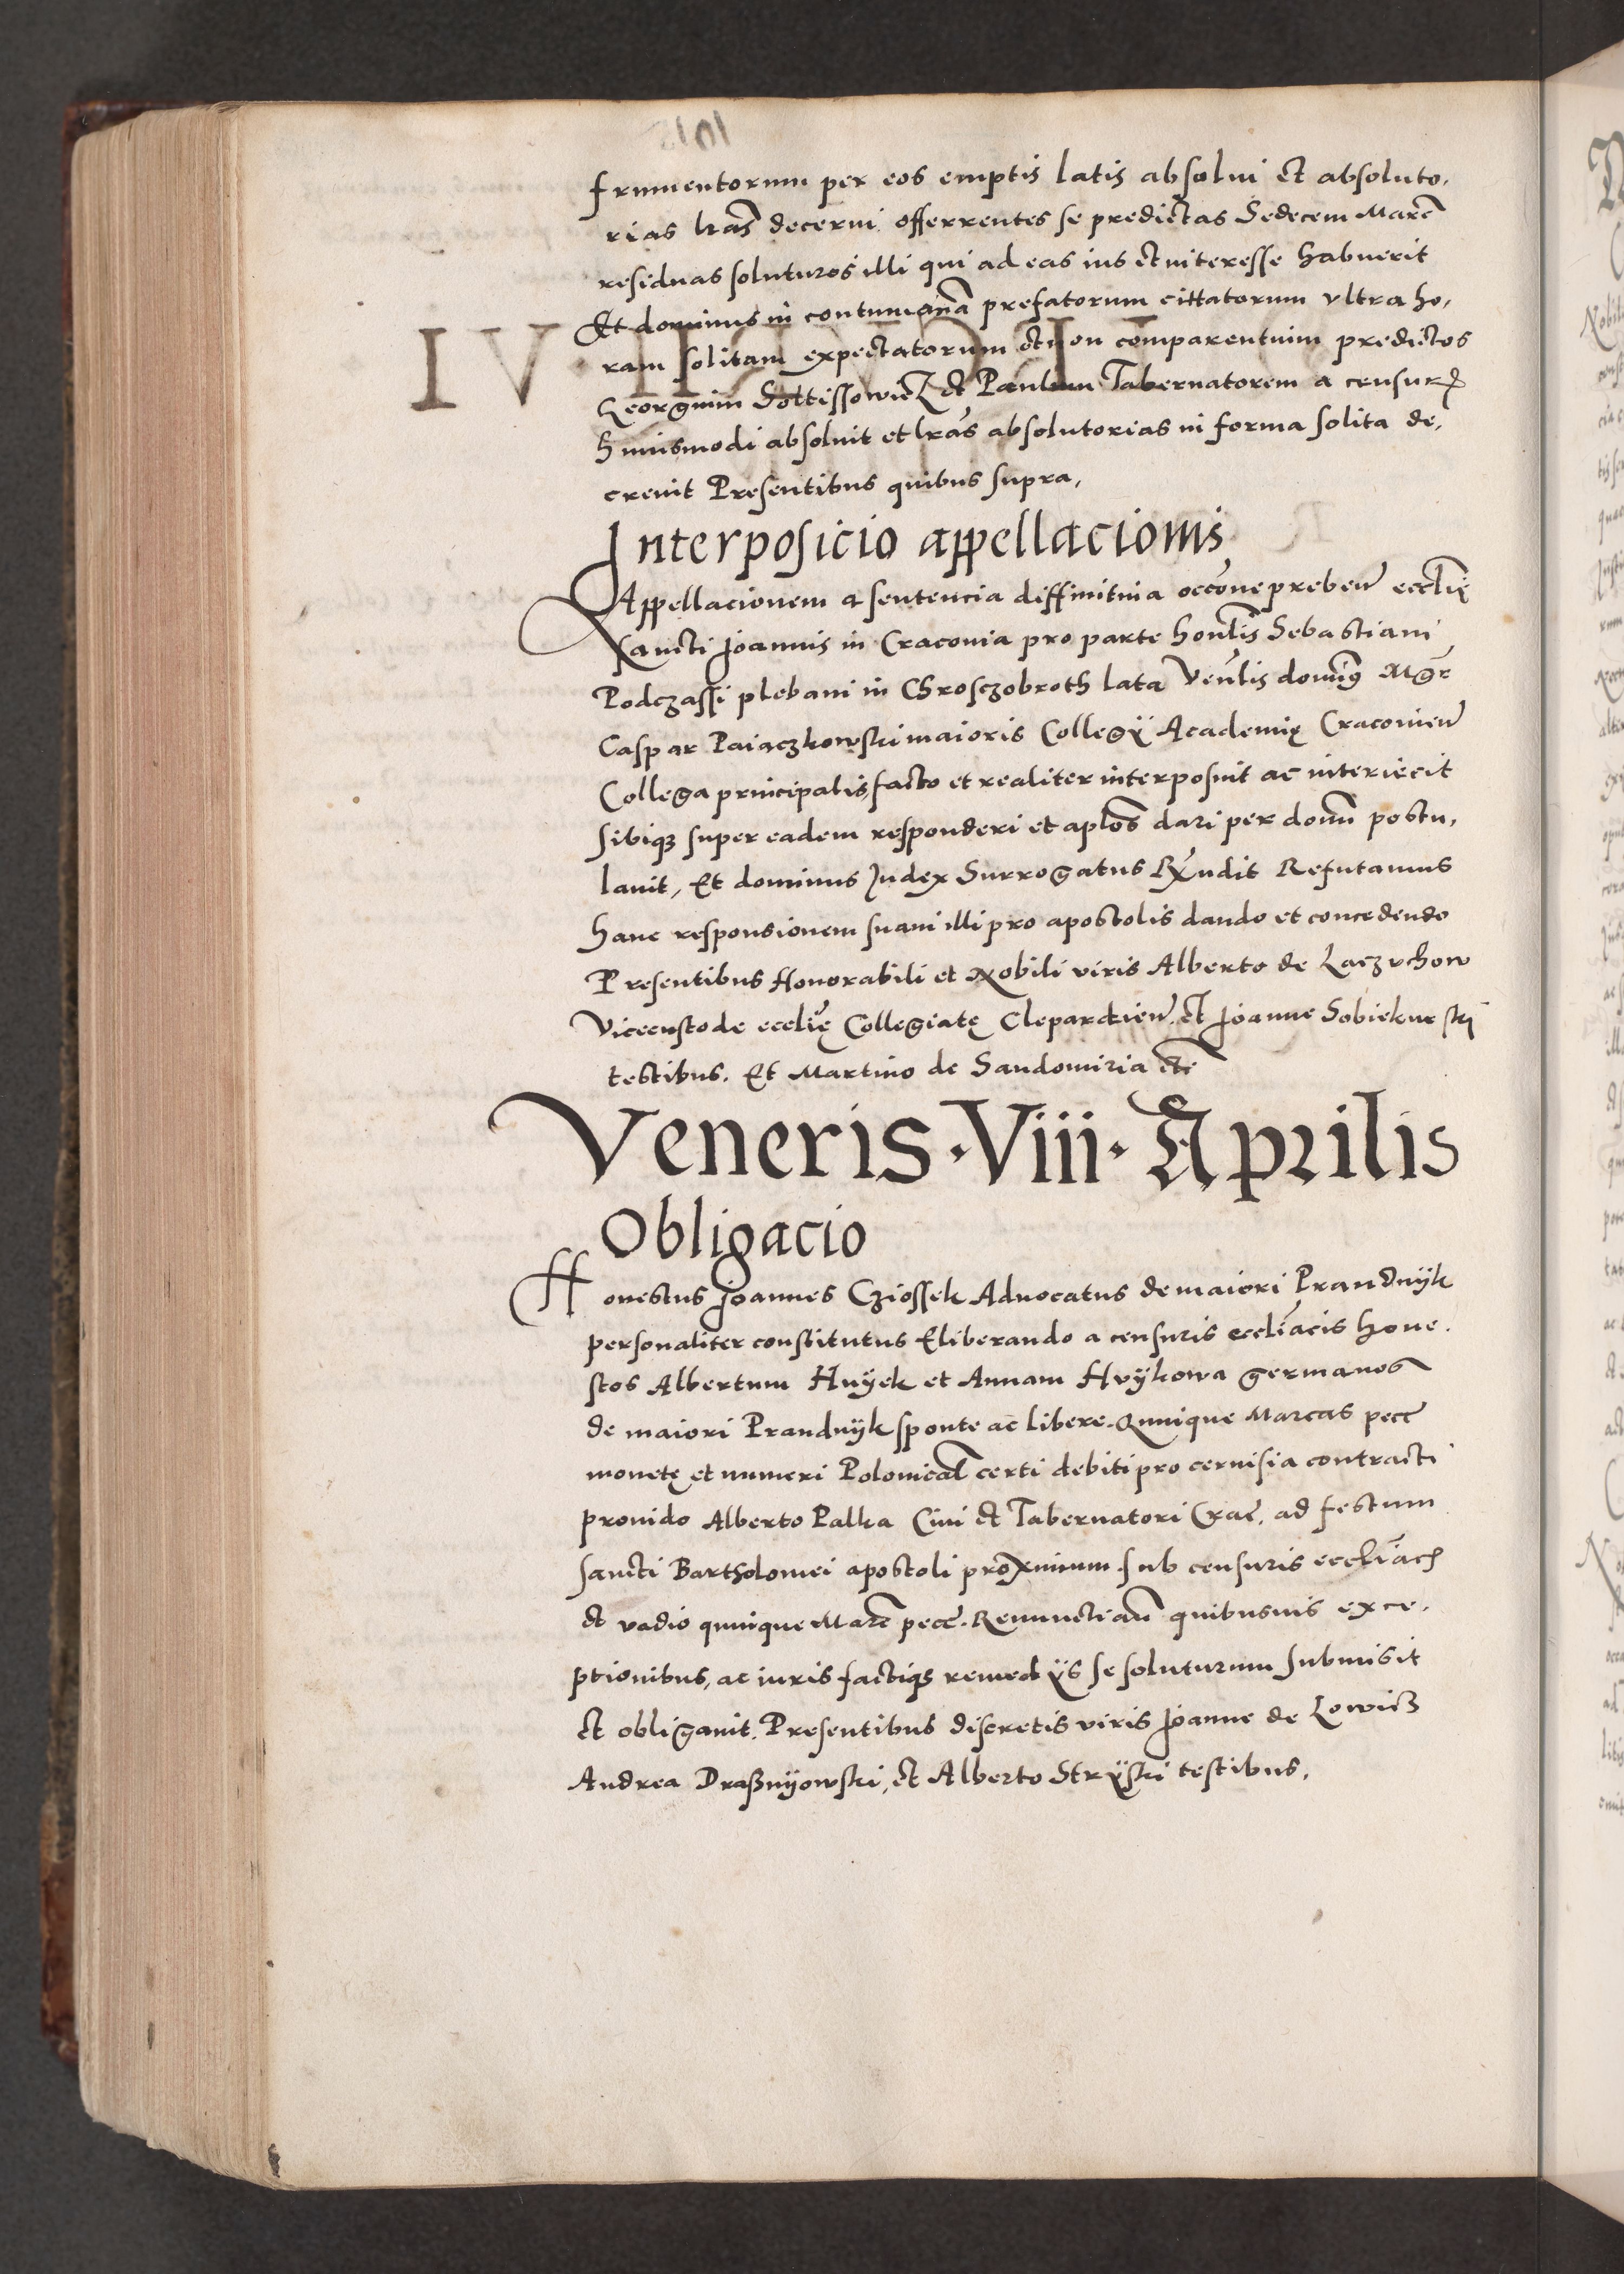 frumentorum per eos emptis latis absolui et absoluto,
rias lras decerni offerrentes se predictas Sedecem Marc
residuas soluturos illi qui ad eas ius et interesse habuerit
Et dominus in contumacia prefatorum cittatorum vltra ho,
ram solitam expectatorum et non comparentuim predictos
Georgium et Paulum Tabernatorem a censuris
huiusmodi absoluit et lras absolutorias in forma solita de,
creuit Presentibus quibus supra,
Interposicio appellacionis
Appellacionem a sentencia diffinitiua occone preben ecclie
Sancti Joannis in Cracouia pro parte honlis Sebastiani
Podczassi plebani in Chrosczobroth lata Venlis domins Mgr
Caspar Paiaczkowski maioris Collegÿ Academię Cracouien
Collega principalis, facto et realiter interposuit ac interiecit
sibiqz super eadem responderi et aplos dari per donu postu,
lauit, Et dominus Judex Surrogatus Rndit Refutamus
hanc responsionem suam illi pro apostolis dando et concedendo
Presentibus Honorabili et Nobili viris Alberto de Laczuchow
Vicecustode ecclie Collegiatę Clepardien. et Joanne Sobiekurski
testibus. Et Martino de Sandomiria etc
Veneris · Viii · Aprilis
Obligacio
Honestus Joannes Cziossek Aduocatus de maiori Prandnÿk
personaliter constitutus Eliberando a censuris eccliacis hone.
stos Albertum Huÿek et Annam Hvÿkowa germanos
de maiori Prandnÿk sponte ac libere. Quinque Marcas pecc
monetę et numeri Polonical certi debiti pro ceruisia contracti
prouido Alberto Palka Ciui et Tabernatori Crac, ad festum
sancti Bartholomei apostoli proximum. sub censuris eccliach
et vadio quinque Marc pecc. Renunctian quibusuis exce.
ptionibus, ac iuris factiqs remedÿs se soluturum submisit
et obligauit. Presentibus discretis viris Joanne de Lowicz
Andrea Draßnÿowski, et Alberto Strÿski testibus,